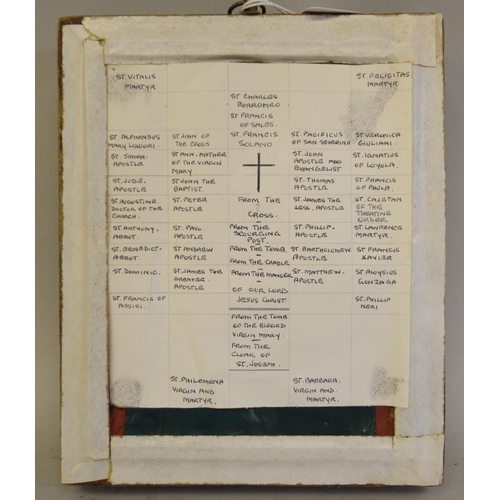 ST. VITALIS
MARTYR
ST. FELICITAS
MARTYR.
ST CHARLES
BORROMEO
ST FRANCIS
OF SALES.
ST. FRANCIS
SOLANO
ST. ALPHONSUS
MARY LIGUORI
ST. JOHN OF
THE CROSS
ST. PACIFICUS
OF SAN SEVERINO
ST VERONICA
GIULIANI.
ST. SIMON.
APOSTLE
ST. ANN. MOTHER
OF THE VIRGIN
MARY
ST. JOHN
APOSTLE AND
EVANGELIST
ST. IGNATIUS
OF LOYOLA.
ST. JUDE.
APOSTLE
ST JOHN THE
BAPTIST.
ST. THOMAS
APOSTLE
ST. FRANCIS
OF PAULA.
ST. AUGUSTINE.
DOCTOR OF THE
CHURCH.
ST. PETER
APOSTLE
FROM THE
CROSS.
ST. JAMES THE
LESS. APOSTLE
ST. CAJETAN
OF THE
THEATINE
ORDER
ST. ANTHONY.
ABBOT.
ST. PAUL.
APOSTLE
FROM THE
SCOURGING
POST.
ST. PHILLIP.
APOSTLE
ST. LAWRENCE
MARTYR.
ST. BENEDICT.
ABBOT.
ST. ANDREW
APOSTLE
FROM THE TOMB.
FROM THE CRADLE
ST. BARTHOLOMEW
APOSTLE
ST. FRANCIS
XAVIER
ST. DOMINIC.
ST. JAMES THE
GREATER.
APOSTLE
FROM THE MANGER
OF OUR LORD
JESUS CHRIST
ST. MATTHEW.
APOSTLE
ST ALOYSIUS
GONZAGA
ST. FRANCIS OF
ASSISI.
ST. PHILLIP
NERI
FROM THE TOMB
OF THE BLESSED
VIRGIN MARY.
FROM THE
CLOAK OF
ST. JOSEPH.
ST. PHILOMENA
VIRGIN AND
MARTYR.
ST. BARBARA.
VIRGIN AND
MARTYR.